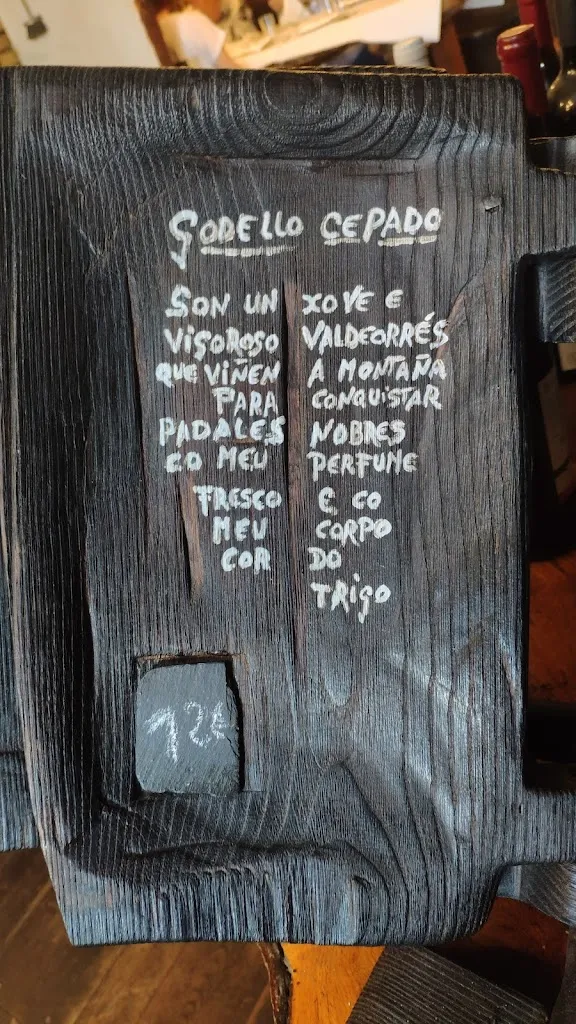 GODELLO CEPADO
SON UN XOVE E
VIGOROSO VALDEORRÉS
QUE VIÑEN A MONTAÑA
PARA CONQUISTAR
PADALES NOBRES
CO MEU PERFUME
FRESCO E CO
MEU CORPO
COR DO
TRIGO
12€